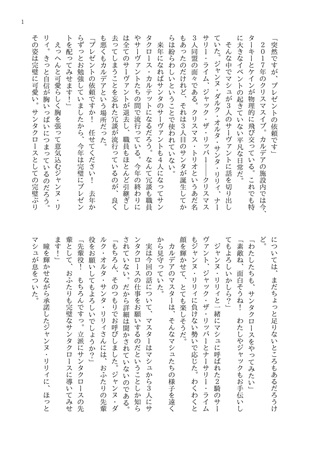 1
「突然ですが、プレゼントの依頼です」
２０１７年のクリスマスイブ。カルデアの施設内では今、
リースとケインが物理的に飛び交っている。これでも特
に大きなイベントの起きていない平凡な日常だ。
そんな中でマシュが３人のサーヴァントに話を切り出し
ていた。ジャンヌ・ダルク・オルタ・サンタ・リリィ、ナー
サリー・ライム、ジャック・ザ・リッパー――クリスマス
３人同盟の面々である。クリスマストリオというあだ名
もあったのだけれど、それは３人目のサンタが誕生してか
らは紛らわしいということで使われていない。
来年になればサンタのサーヴァントも４人になってサン
タクロース・カルテットになるだろう、なんて冗談も職員
やサーヴァントたちの間で流行っている。今年の終わりに
は全てのサーヴァントが退去し、職員もほとんど引継ぎで
去ってしまうことを忘れた冗談が流行っているのが、良く
も悪くもカルデアという場所だった。
「プレゼントの依頼ですか！　任せてください！　去年か
らずっとお勉強していましたから、今年は完璧にプレゼン
トを配ってみせます！」
えっへんと可愛らしく胸を張って意気込むジャンヌ・リ
リィ。きっと自信が胸いっぱいにつまっているのだろう。
その姿は完璧に可愛い。サンタクロースとしての完璧ぶり
については、まだちょっと足りないところもあるだろうけ
ど。
「わたしたちも、サンタクロースをやってみたい」
「素敵ね、面白そうね！　わたしやジャックもお手伝いし
てもよろしいかしら？」
ジャンヌ・リリィと一緒にマシュに呼ばれた２騎のサー
ヴァント、ジャック・ザ・リッパーとナーサリー・ライム
もジャンヌ・リリィに負けない勢いで応じた。わくわくと
顔を輝かせて、とても楽しそうだ。
カルデアのマスターは、そんなマシュたちの様子を遠く
から見守っていた。
実は今回の話について、マスターはマシュから３人にサ
ンタクロースの仕事をお願いするのだということしか知ら
されていない。だから詳細は聞かされていないのである。
「もちろん、そのつもりでお呼びしました。ジャンヌ・ダ
ルク・オルタ・サンタ・リリィさんには、おふたりの先輩
役をお願いしてもよろしいでしょうか？」
「先輩役！　もちろんですっ。立派にサンタクロースの先
輩として、おふたりも完璧なサンタクロースに導いてみせ
ます！」
瞳を輝かせながら承諾したジャンヌ・リリィに、ほっと
マシュが息をついた。